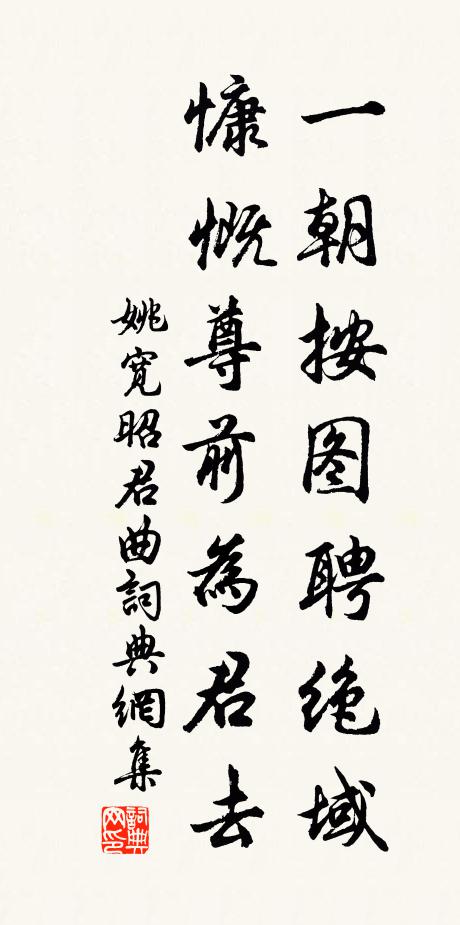 一朝按图聘绝域
慷慨尊前為君去
姚宽昭君曲詞典網集
詞典网印